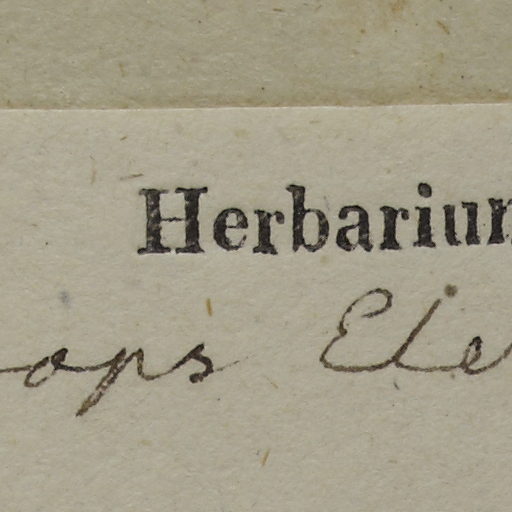 Herbarium
ops Ele